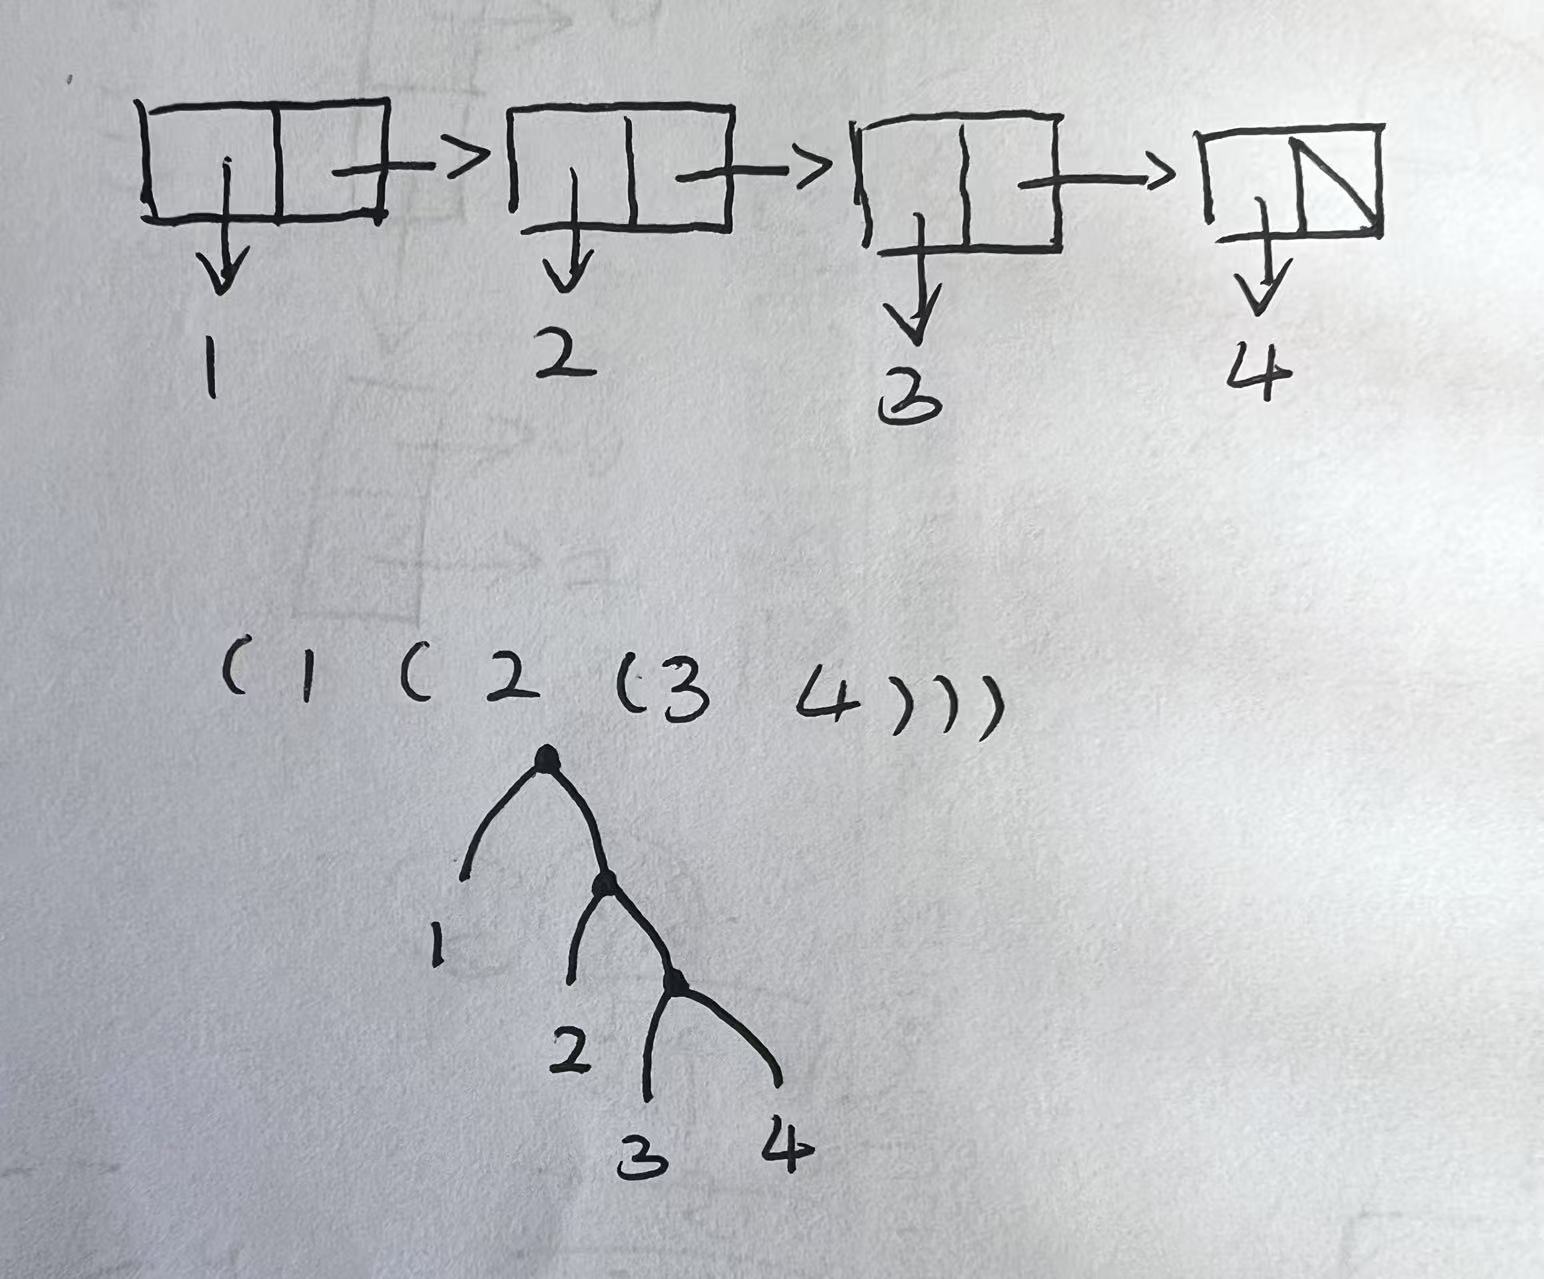 1 2 3 4
( 1 ( 2 ( 3 4 ) ) )
1
2
3 4